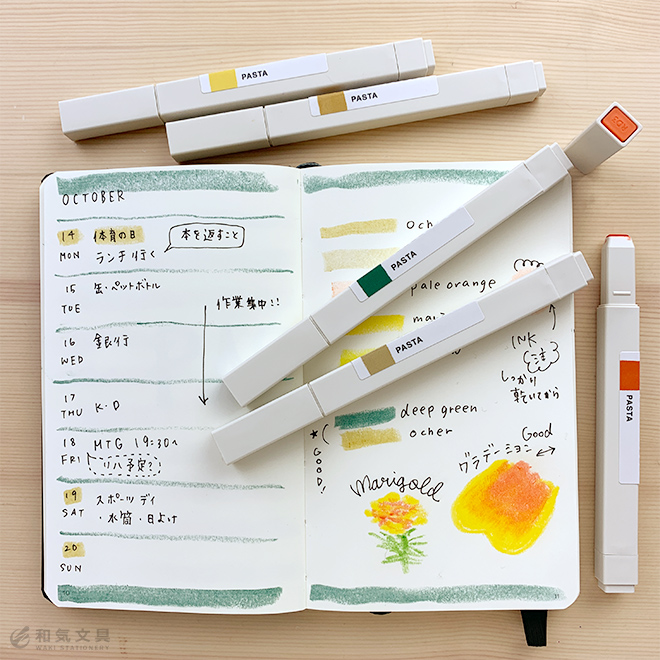 PASTA
PASTA
OCTOBER
14 体育の日
MON ランチ行く
本を返すこと
15 缶・ペットボトル
TUE
作業集中!!
16 銀行
WED
17
THU K.D
18 MTG 19:30〜
FRI リハ予定?
19 スポーツデイ
SAT ・水筒・日よけ
20
SUN
PASTA
pale orange
PASTA
INK
注
しっかり
乾いてから
deep green
ocher
★GOOD!
Good
グラデーション
Marigold
PASTA
和気文具
WAKI STATIONERY